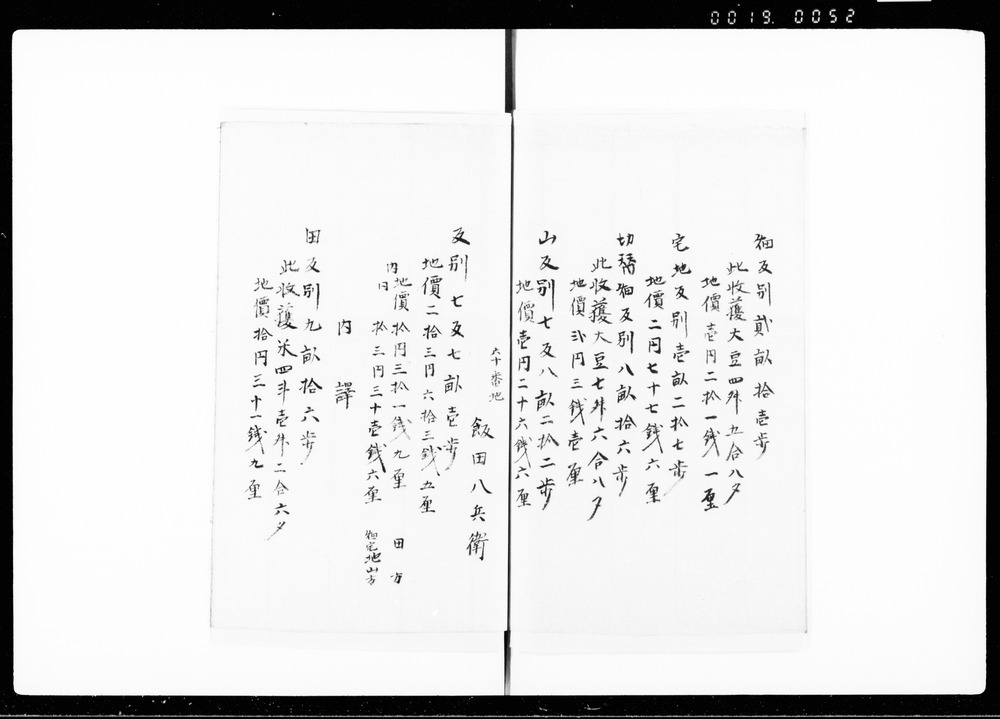 0019 0052
畑反別貳畝拾壱歩
此收護大豆四舛五合八夕
地價壱円二拾一銭一厘
宅地反別壱畝二拾七歩
地價二円七十七銭六厘
切替畑反別八畝拾六歩
此收護大豆七舛六合八夕
地價弐円三銭壱厘
山反別七反八畝二拾二歩
地價壱円二十六銭六厘
六十番地
飯田八兵衛
反別七反七畝壱歩
地價二拾三円六拾三銭五厘
内地價拾円三拾一銭九厘 田方
同拾三円三十壱銭六厘 畑宅地山方
内譯
田反別九畝拾六歩
此收護米四斗壱舛二合六夕
地價拾円三十一銭九厘